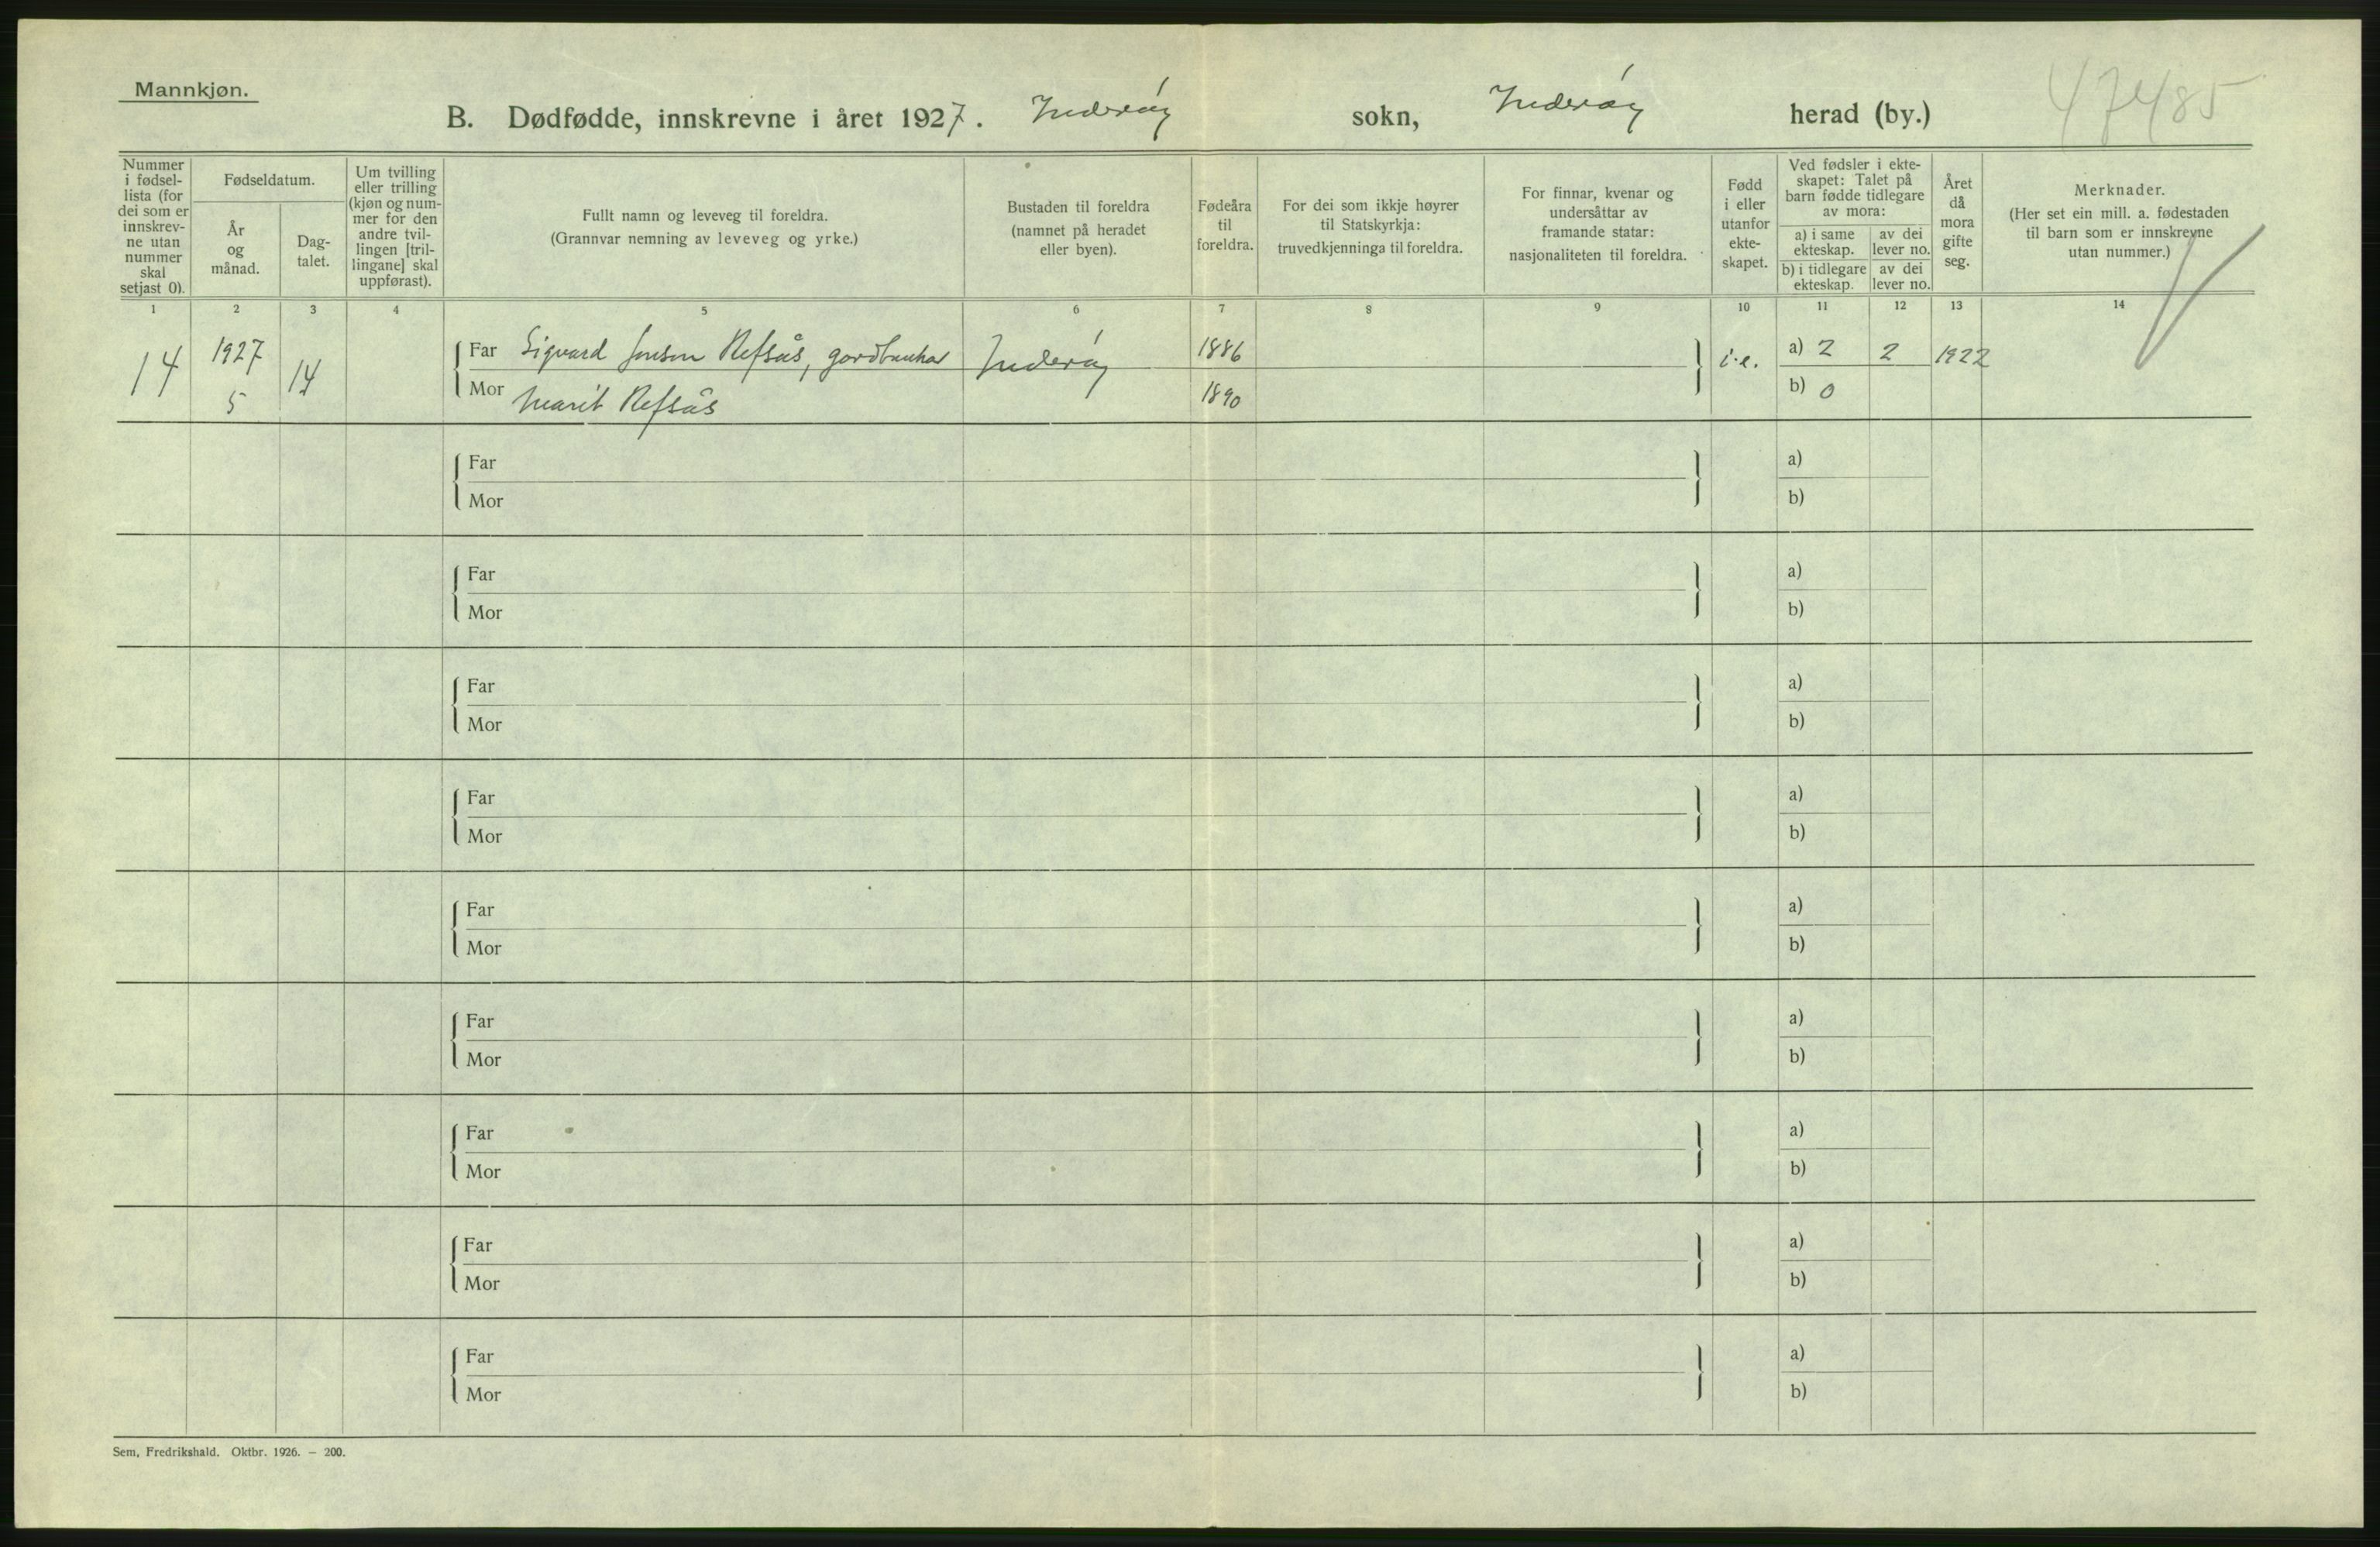 Mannkjøn.
B. Dødfødde, innskrevne i året 1927. Inderøy sokn, Inderøy herad (by.)
47485
Nummer
i fødsel-
lista (for
dei som er
innskrev-
ne utan
nummer
skal
setjast 0).
Fødseldatum.
År
og
månad.
Dag-
talet.
Um tvilling
eller trilling
(kjøn og num-
mer for den
andre tvil-
lingen [tril-
lingane] skal
uppførast).
Fullt namn og leveveg til foreldra.
(Grannvar nemning av leveveg og yrke.)
Bustaden til foreldra
(namnet på heradet
eller byen).
Fødeåra
til
foreldra.
For dei som ikkje høyrer
til Statskyrkja:
truvedkjenninga til foreldra.
For finnar, kvenar og
undersåttar av
framande statar:
nasjonaliteten til foreldra.
Fødd
i eller
utanfor
ekte-
skapet.
Ved fødsler i ekte-
skapet: Talet på
barn fødde tidlegare
av mora:
a) i same
ekteskap.
av dei
lever no.
b) i tidlegare
ekteskap.
av dei
lever no.
Året
då
mora
gifte
seg.
Merknader.
(Her set ein mill. a. fødestaden
til barn som er innskrevne
utan nummer.)
1 2 3 4 5 6 7 8 9 10 11 12 13 14
14 1927 14 Far Sigvard Jonson Refsås, gardbrukar Inderøy 1886 i.e. a) 2 2 1922
5 Mor Marit Refsås 1890 b) 0
Far a)
Mor b)
Far a)
Mor b)
Far a)
Mor b)
Far a)
Mor b)
Far a)
Mor b)
Far a)
Mor b)
Far a)
Mor b)
Far a)
Mor b)
Far a)
Mor b)
Sem, Fredrikshald. Oktbr. 1926. — 200.